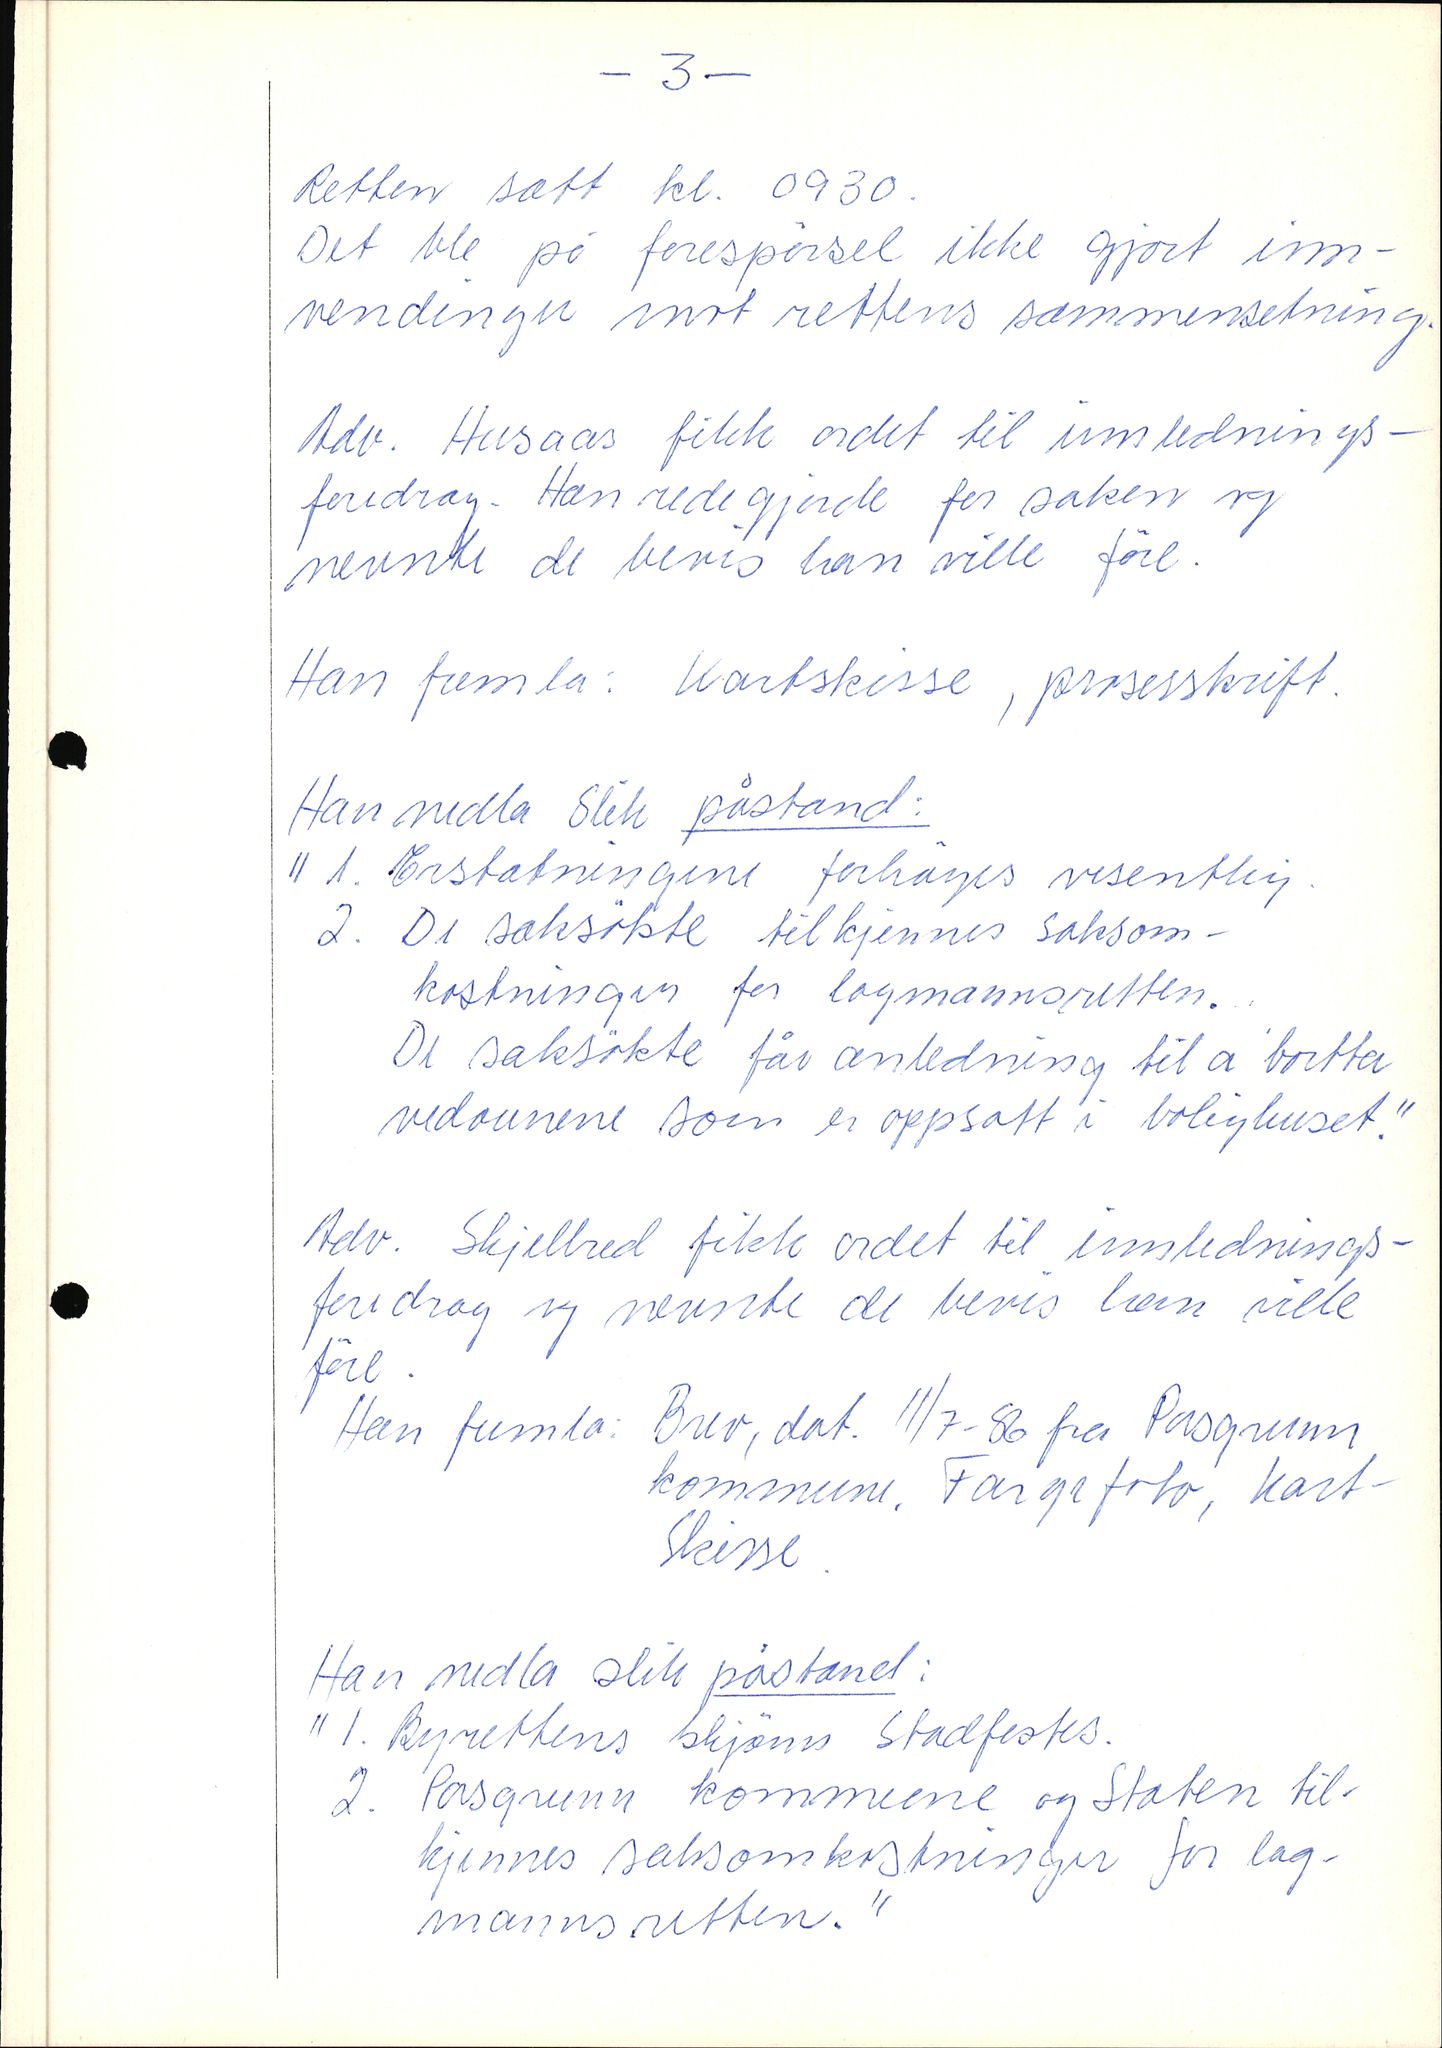 - 3 -
Retten satt kl. 0930.
Det ble på forespörsel ikke gjort inn-
vendinger mot rettens sammensetning.
Adv. Husaas fikk ordet til innlednings-
foredrag. Han redegjorde for saken og
nevnte de bevis han ville före.
Han fremla: Kartskisse, prosesskrift.
Han nedla slik påstand:
" 1. Erstatningene forhöyes vesentlig.
2. De saksökte tilkjennes saksom-
kostninger for lagmannsretten.
De saksökte får anledning til å bortta
vedovnene som er oppsatt i bolighuset."
Adv. Skjelbred fikk ordet til innlednings-
foredrag og nevnte de bevis han ville
före.
Han fremla: Brev, dat. 11/7-86 fra Porsgrunn
kommune. Fargefoto, kart-
skisse.
Han nedla slik påstand:
" 1. Byrettens skjönn stadfestes.
2. Porsgrunn kommune og Staten til-
kjennes saksomkostninger for lag-
mannsretten."